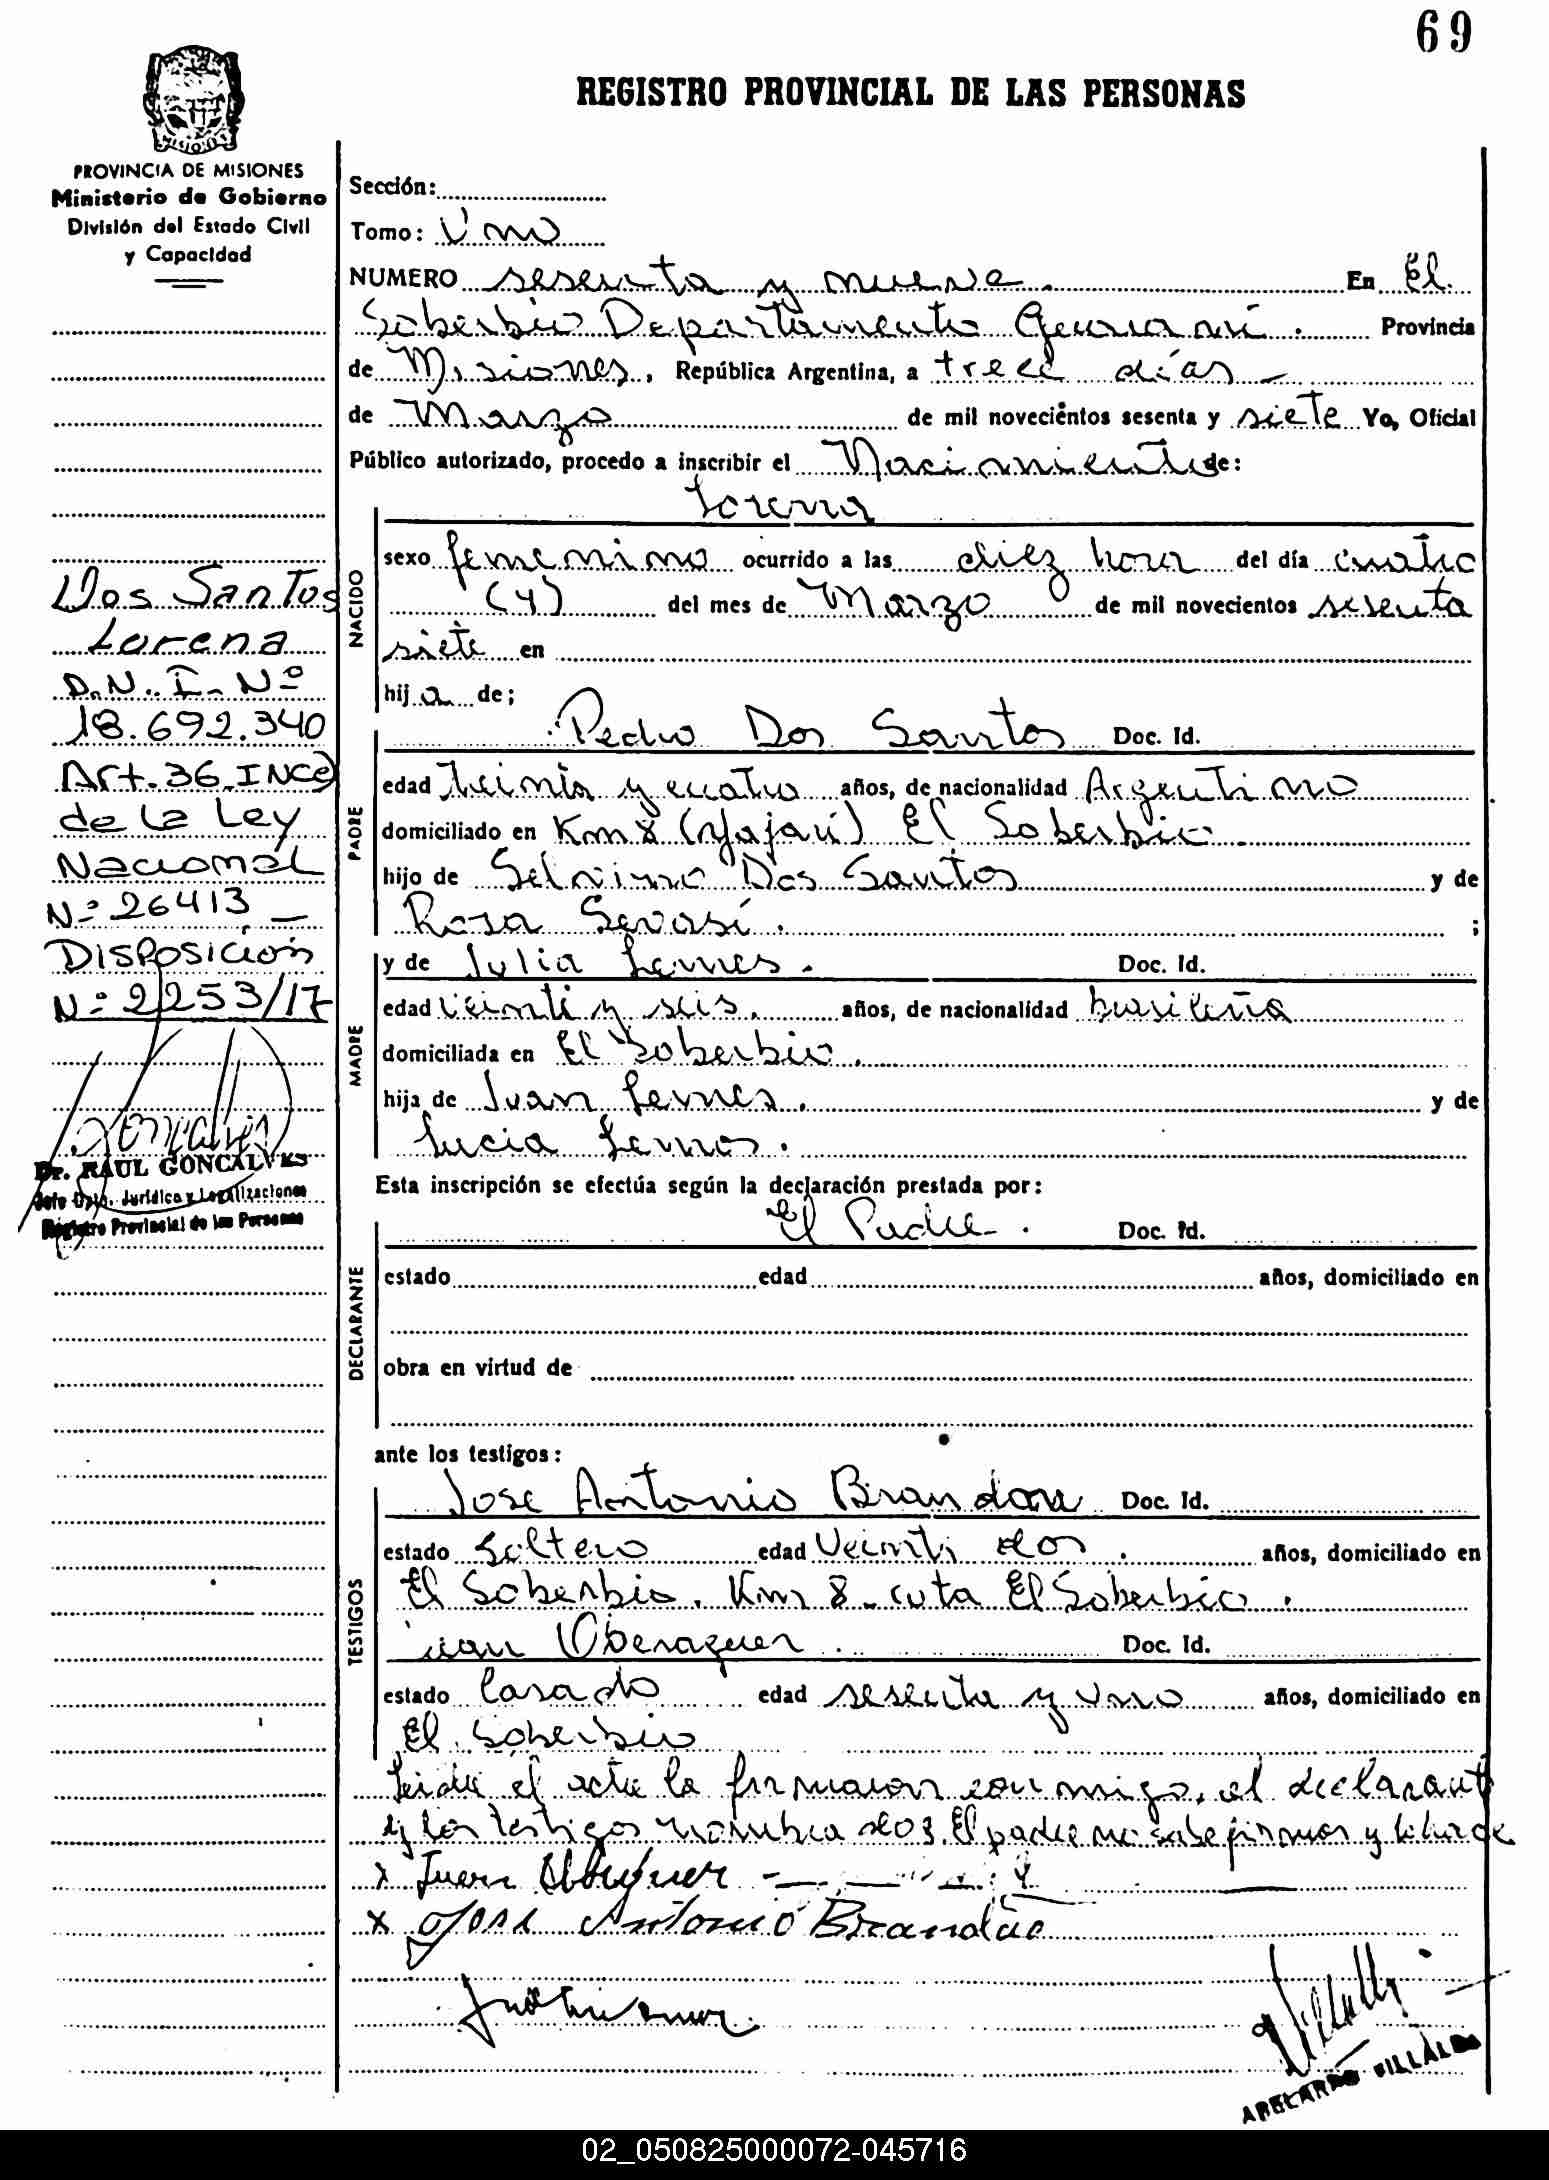 69
REGISTRO PROVINCIAL DE LAS PERSONAS
MISIONES
PROVINCIA DE MISIONES
Ministerio de Gobierno
División del Estado Civil
y Capacidad
Dos Santos
Lorena
D.N.I. Nº
18.692.340
Art. 36 INC e)
de la Ley
Nacional
Nº 26413 —
DISPOSICIÓN
Nº 2253/17
Dr. RAUL GONCALVES
Jefe Dpto. Jurídica y Legalizaciones
Registro Provincial de las Personas
Sección:
Tomo: Uno
NUMERO sesenta y nueve. En El
Soberbio Departamento Guaraní. Provincia
de Misiones, República Argentina, a trece días
de Marzo de mil novecientos sesenta y siete Yo, Oficial
Público autorizado, procedo a inscribir el Nacimiento de:
Lorena
NACIDO
sexo femenino ocurrido a las diez hora del día cuatro
(4) del mes de Marzo de mil novecientos sesenta
siete en
hija de;
Pedro Dos Santos Doc. Id.
PADRE
edad treinta y cuatro años, de nacionalidad Argentino
domiciliado en Km 8 El Soberbio
hijo de Selvino Dos Santos y de
Rosa ;
y de Julia Lemes. Doc. Id.
MADRE
edad veinti y seis. años, de nacionalidad brasileña
domiciliada en El Soberbio.
hija de Juan Lemes. y de
Lucia Lemos.
Esta inscripción se efectúa según la declaración prestada por:
El Padre. Doc. Id.
DECLARANTE
estado edad años, domiciliado en
obra en virtud de
ante los testigos:
Jose Antonio Brandon Doc. Id.
TESTIGOS
estado Soltero edad Veinti dos. años, domiciliado en
El Soberbio. Km 8 - ruta El Soberbio.
Juan Doc. Id.
estado Casado edad sesenta y uno años, domiciliado en
El Soberbio
Leida el acta la firmaron conmigo, el declarante
y los testigos nombrados. El padre no sabe firmar y
x Juan
x Jose Antonio Brandão
ABELARDO VILLALBA
02_050825000072-045716